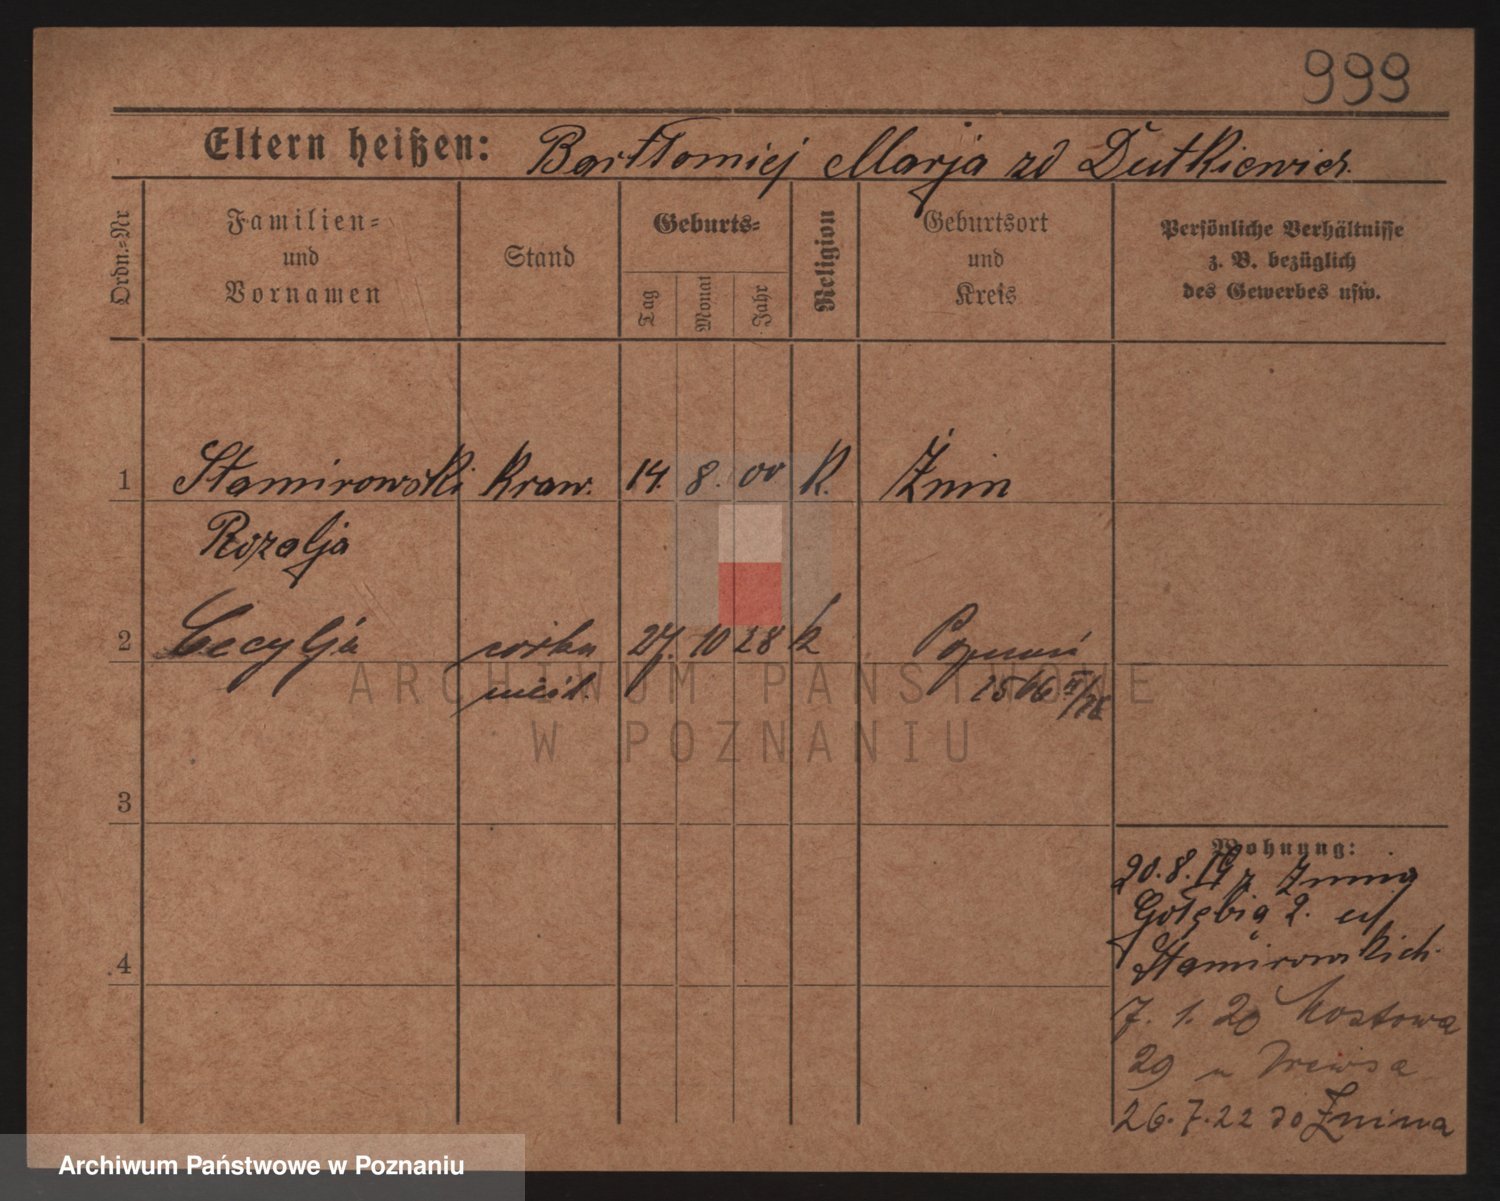 999
Eltern heißen: Bartłomiej Marja zd Dutkiewicz
Ordn.=Nr
Familien=
und
Vornamen
Stand
Geburts=
Tag
Monat
Jahr
Religion
Geburtsort
und
Kreis
Persönliche Verhältnisse
z. B. bezüglich
des Gewerbes usw.
1 Stamirowski Kraw. 14. 8. 00 K. Żnin
Rozalja
2 Cecylja córka 27. 10 28 k Poznań
nieśl. 1566
ARCHIWUM PAŃSTWOWE
W POZNANIU
3
Wohnung:
20.8.19 z Żnina
Gołębia 2. u
Stamirowskich.
4
7. 1. 20 Mostowa
29 u
26.7.22 do Żnina
Archiwum Państwowe w Poznaniu